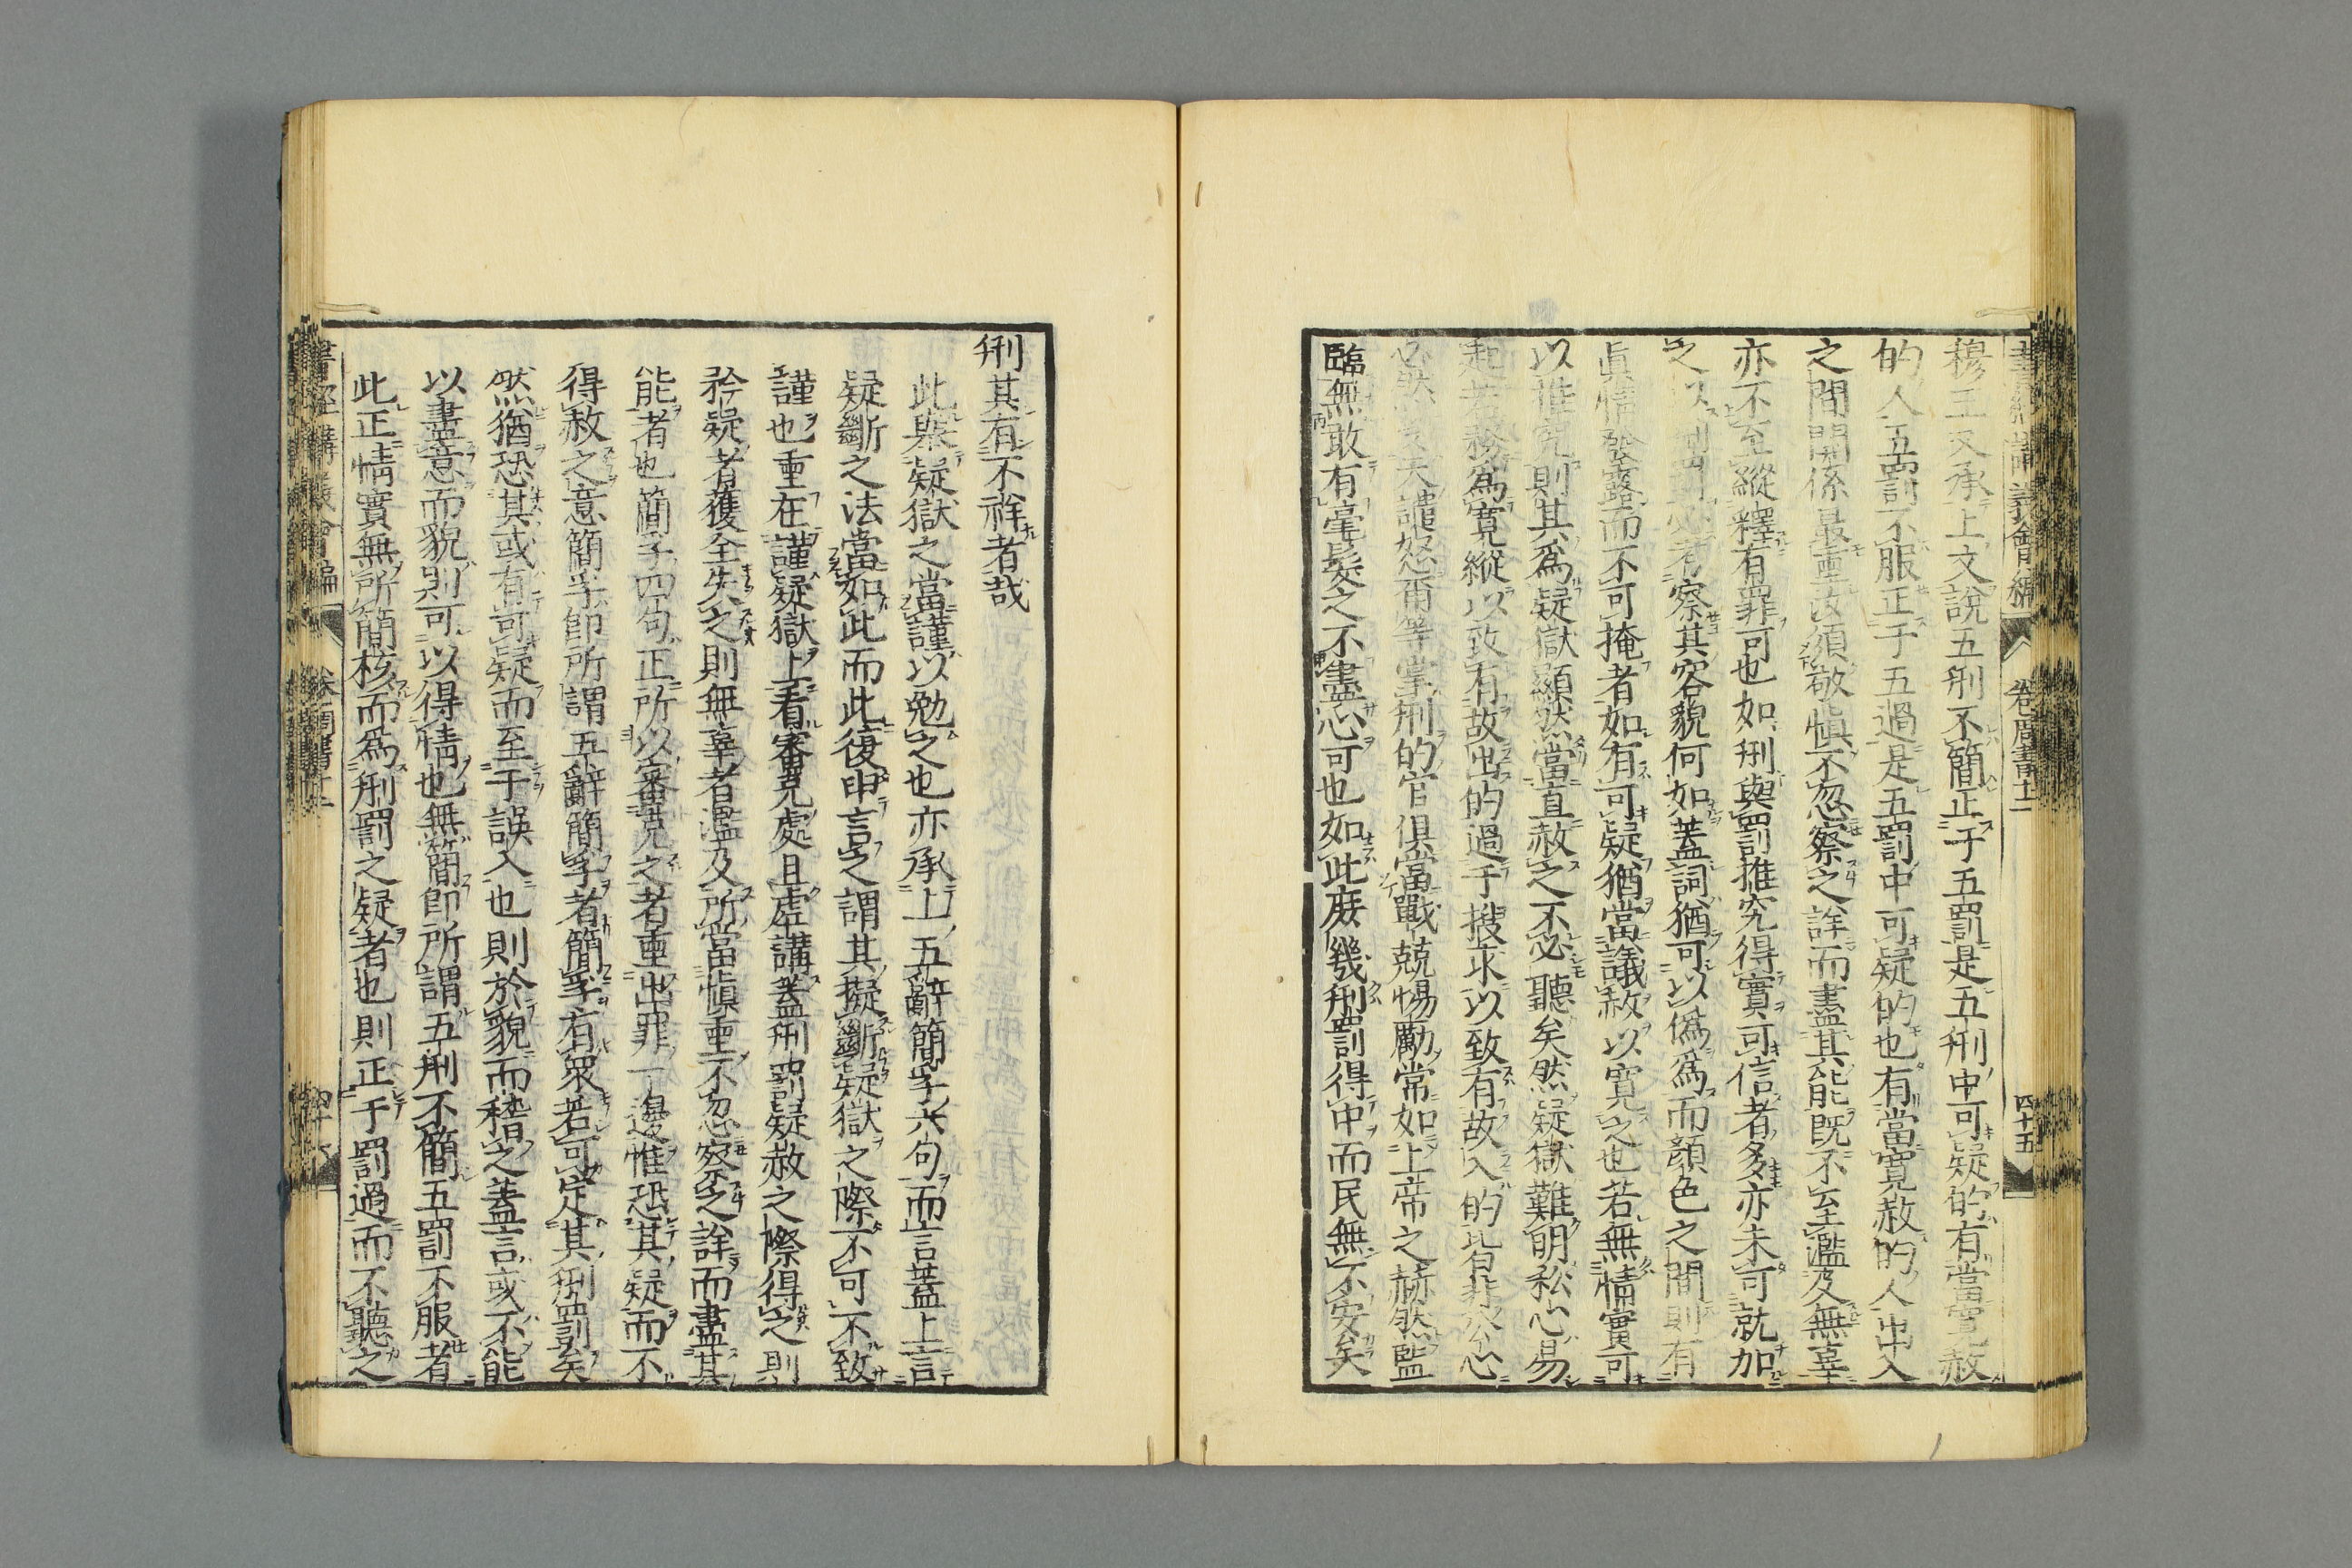 書經講義會編 卷 周書十二 四十五
穆王又承上文說五刑不簡正于五罰是五刑中可疑的有當寬赦
的人五罰不服正于五過是五罰中可疑的也有當寬赦的人出入
之間關係最重汝須敬愼不忽察之詳而盡其能既不至濫及無辜
亦不至縱釋有罪可也如刑與罰推究得實可信者多亦未可就加
之以刑罰必考察其容貌何如葢詞猶可以僞爲而顏色之間則有
眞情發露而不可掩者如有可疑猶當議赦以寬之也若無情實可
以推究則其爲疑獄顯然當直赦之不必聽矣然疑獄難明私心易
起若務爲寬縱以致有故出的過于搜求以致有故入的此皆非公心
必然受天譴怒爾等掌刑的官俱當戰兢惕勵常如上帝之赫然監
臨無敢有毫髮之不盡心可也如此庶幾刑罰得中而民無不安矣
刑其有不祥者哉
此舉疑獄之當謹以勉之也亦承上五辭簡孚六句而言葢上言
疑斷之法當如此而此復申言之謂其擬斷疑獄之際不可不致
謹也重在謹疑獄上看審克處且虛講葢刑罰疑赦之際得之則
矜疑者獲全失之則無辜者濫及所當愼重不忽察之詳而盡其
能者也簡孚四句正所以審克之者重出罪一邊惟恐其疑而不
得赦之意簡孚卽所謂五辭簡孚者簡孚有衆若可定其刑罰矣
然猶恐其或有可疑而至于誤入也則於貌而稽之葢言或不能
以盡意而貌則可以得情也無簡卽所謂五刑不簡五罰不服者
此正情實無所簡核而爲刑罰之疑者也則正于罰過而不聽之
書經講義會編 卷 周書十二 四十六